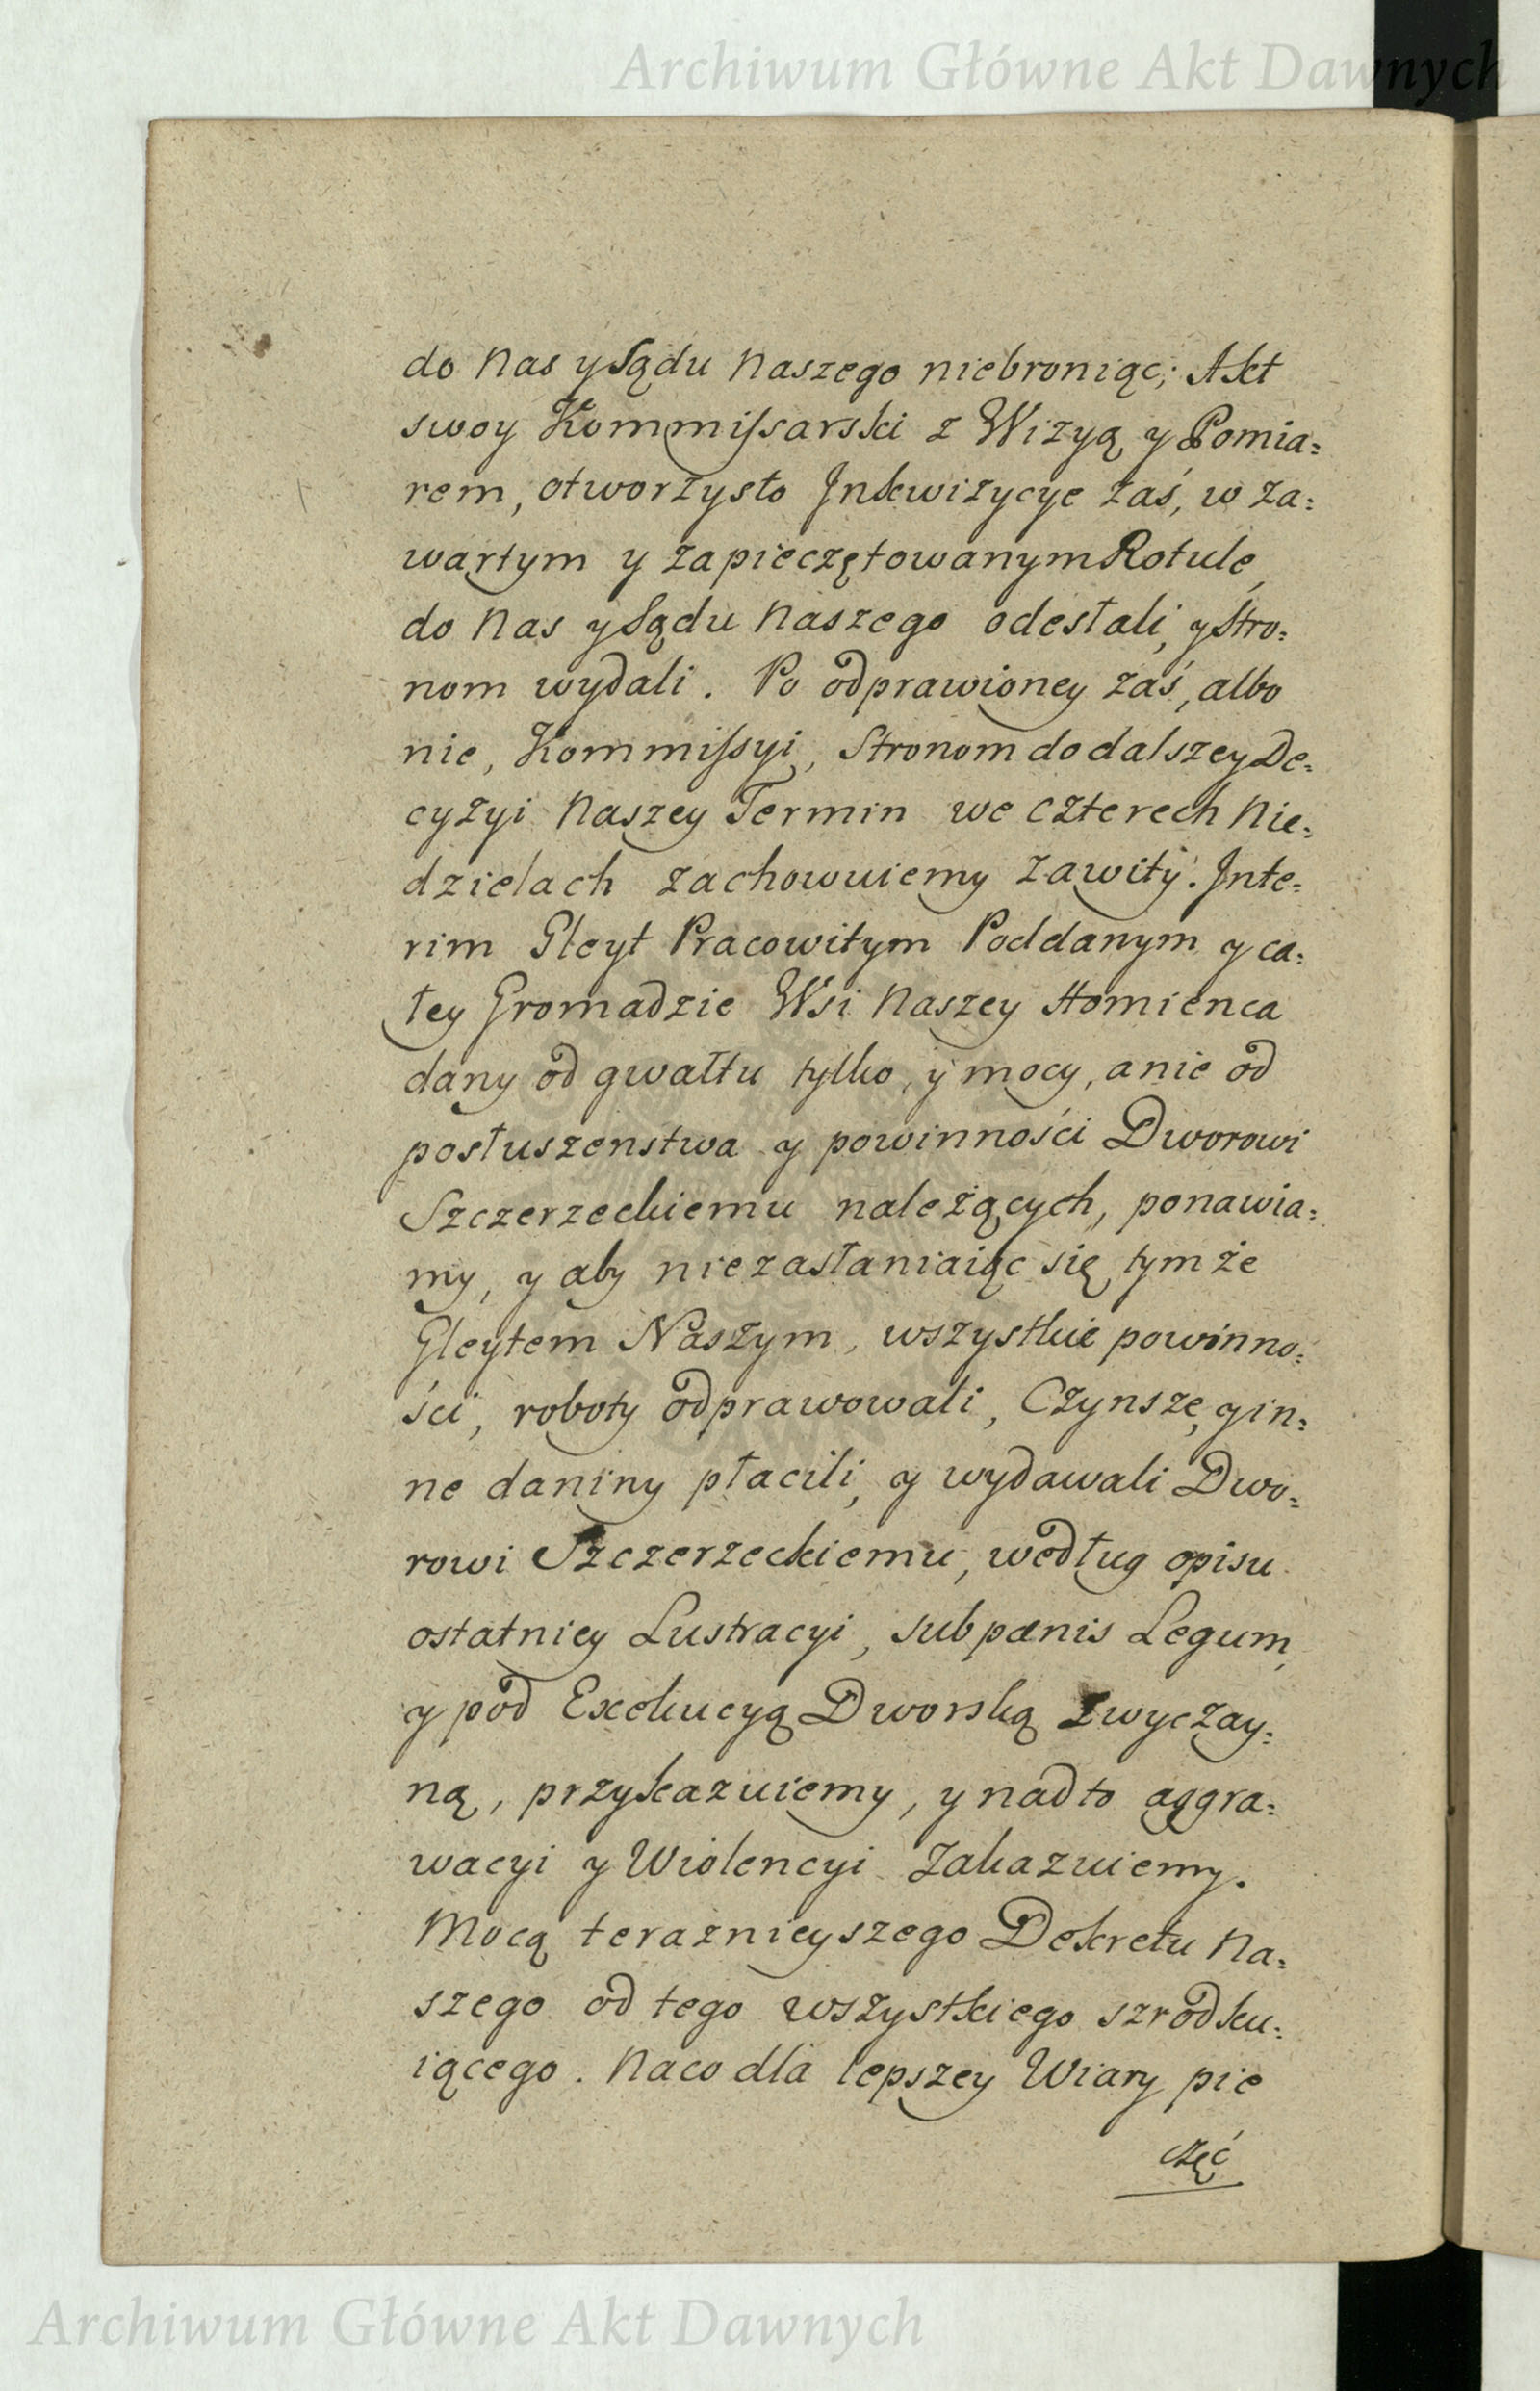 Archiwum Główne Akt Dawnych
do Nas y Sądu Naszego niebroniąc; Akt
swoy Kommissarski z Wizyą y Pomia=
rem, otworzysto Inkwizycye zaś, w za=
wartym y zapieczętowanym Rotule,
do Nas y Sądu Naszego odesłali, y Stro=
nom wydali. Po odprawioney zaś, albo
nie, Kommissyi, Stronom do dalszey De=
cyzyi Naszey Termin we czterech Nie=
dzielach zachowuiemy zawity. Inte=
rim Gleyt Pracowitym Poddanym y ca=
łey Gromadzie Wsi Naszey Homienca
dany od gwałtu tylko, y mocy, a nie od
posłuszenstwa y powinności Dworowi
Szczerzeckiemu należących, ponawia=
my, y aby niezasłaniaiąc się tym że
Gleytem Naszym, wszystkie powinno=
ści, roboty odprawowali, Czynsze, y in=
ne daniny płacili, y wydawali Dwo=
rowi Szczerzeckiemu, według opisu
ostatniey Lustracyi, sub pœnis Legum,
y pod Exekucyą Dworską zwyczay=
ną, przykazuiemy, y nadto aggra=
wacyi y Wiolencyi zakazuiemy.
Mocą teraznieyszego Dekretu Na=
szego od tego wszystkiego szrodku=
iącego. Naco dla lepszey Wiary pie
częć
Archiwum Główne Akt Dawnych